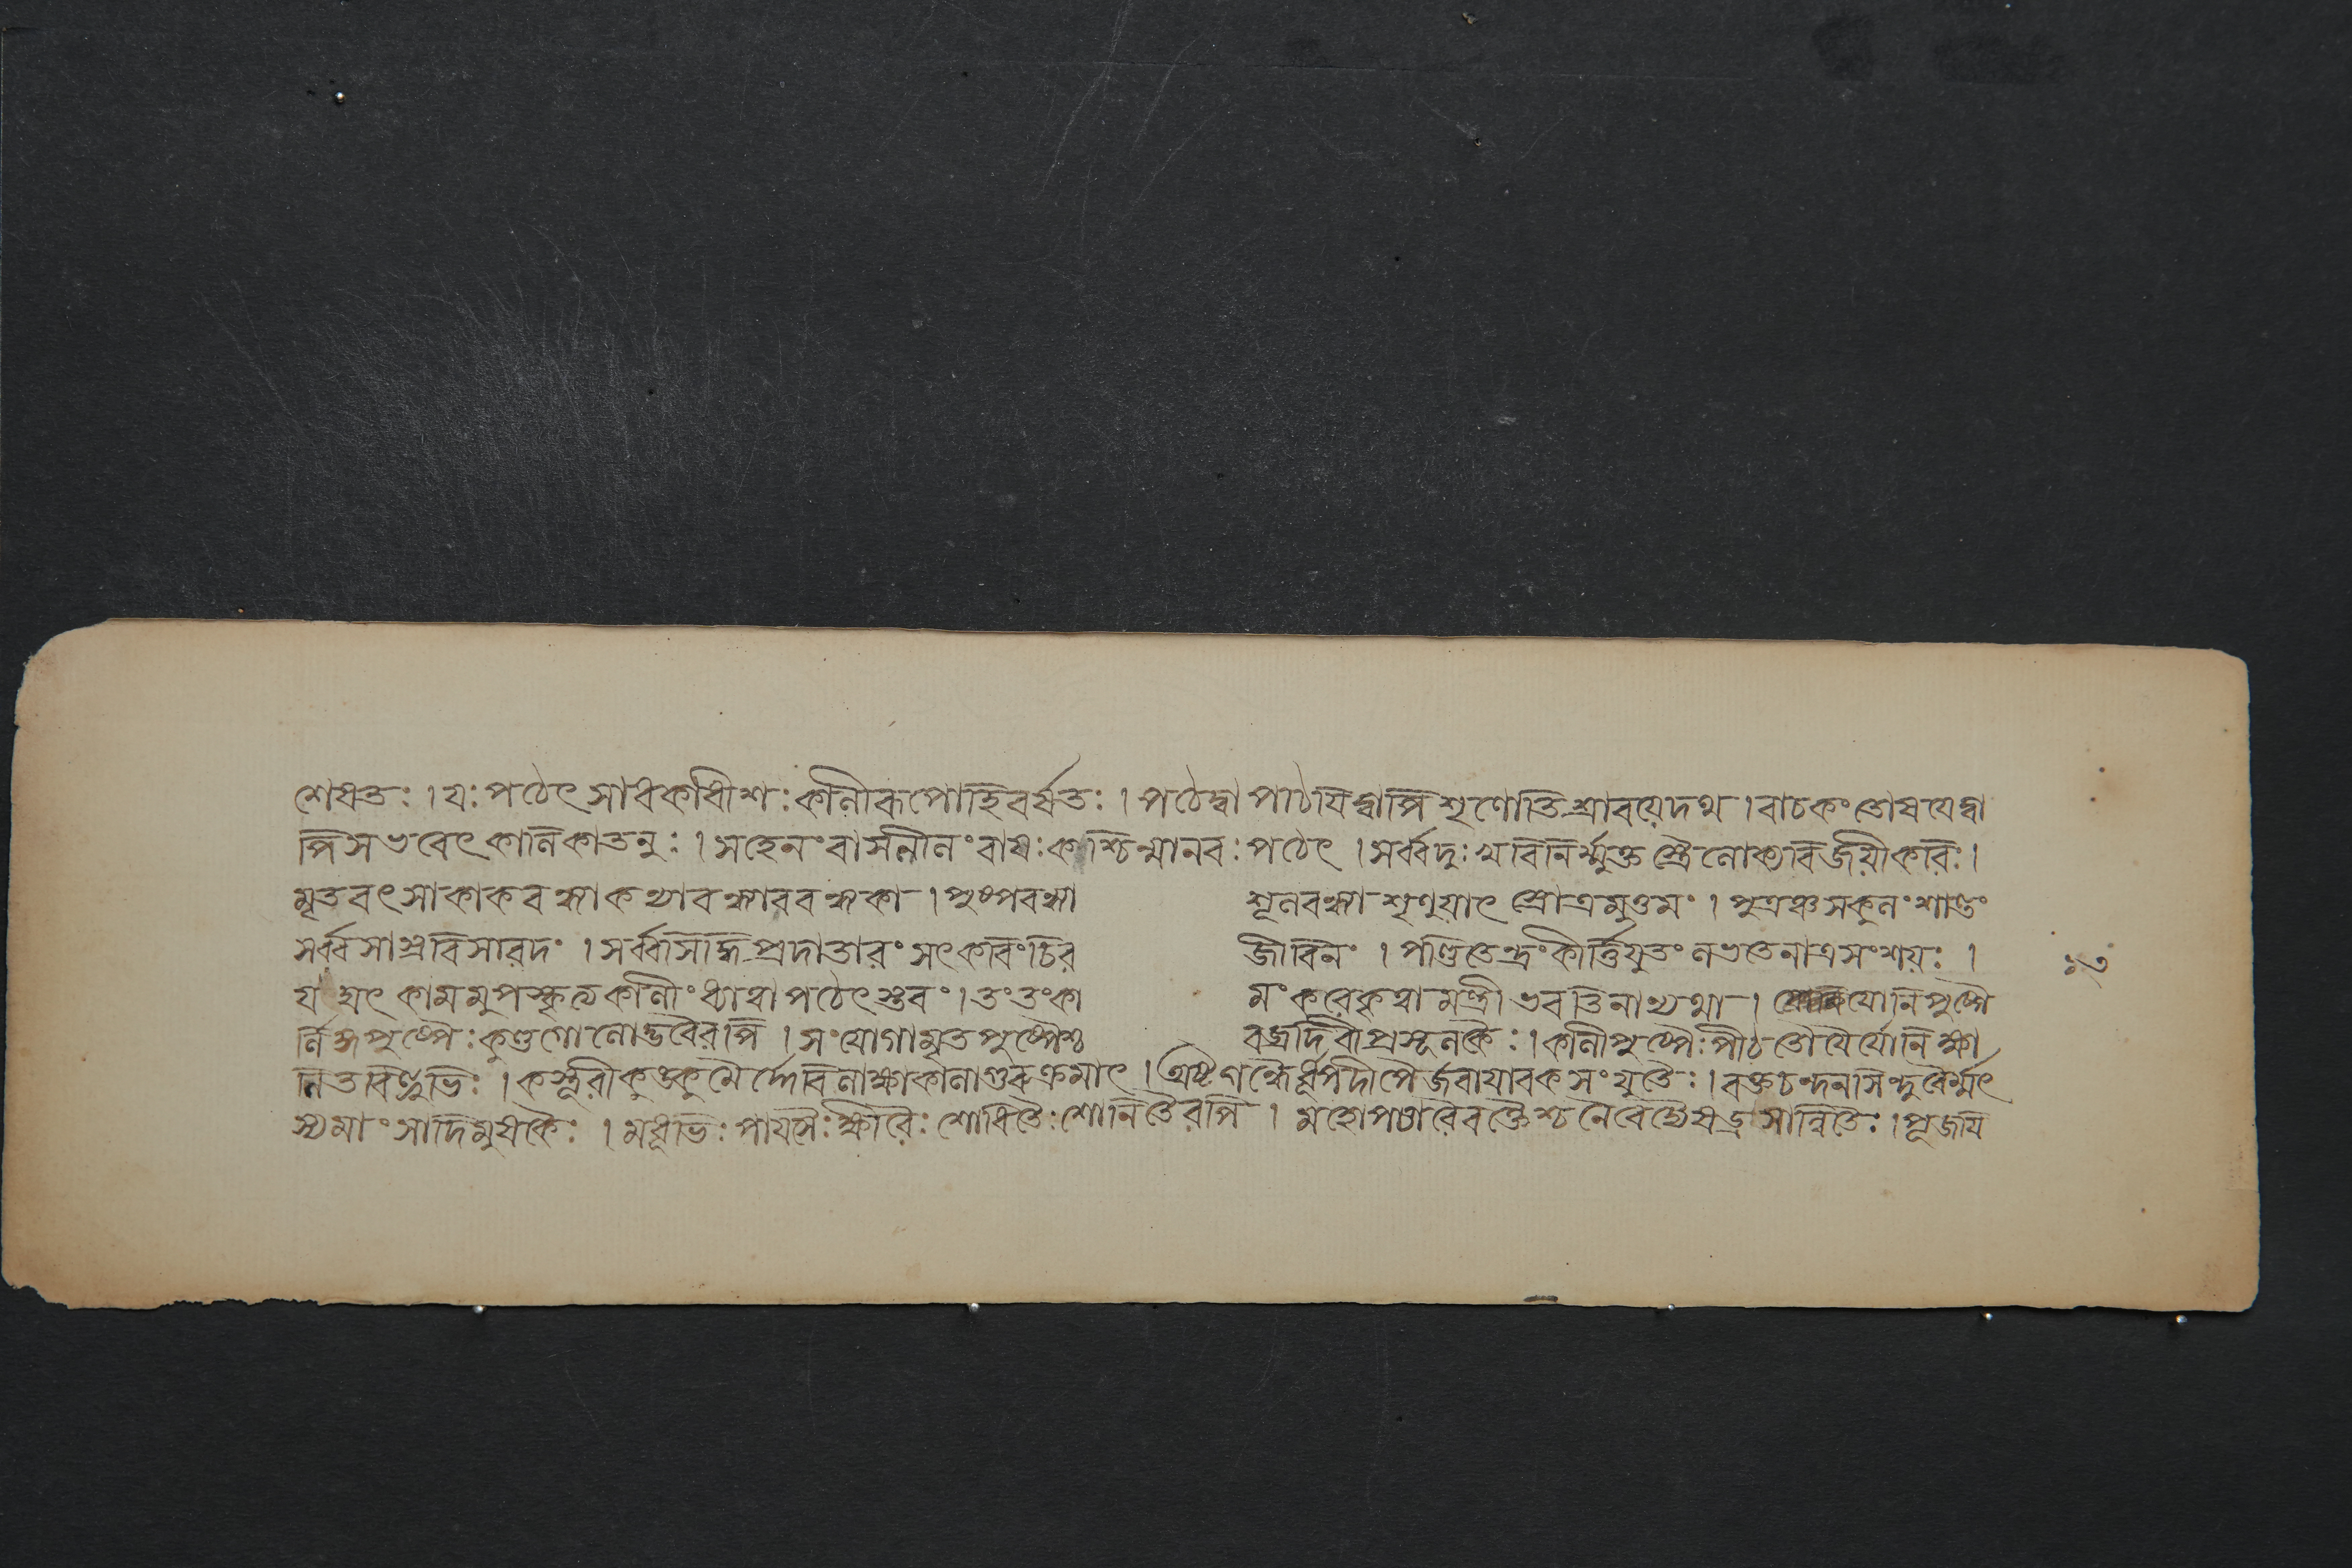 শেষতঃ । যঃ পঠেৎ সাধকাধীশঃ কালীরূপোহি বর্ষতঃ । পঠেদ্বা পাঠয়িদ্বাপি শৃণোতি শ্রাবয়েদথ । বাচকং তোষয়েদ্বা
পি স ভবেৎ কালিকাতনুঃ । সহেলং বা সলীলং বা যঃ কশ্চিন্মানবঃ পঠেৎ । সর্ব্বদুঃখবিনির্ম্মুক্ত স্ত্রৈলোক্যবিজয়ী কবিঃ ।
মৃতবৎসা কাকবন্ধ্যা কন্যাবন্ধ্যা ববন্ধ্যকা । পুষ্পবন্ধ্যা শূলবন্ধ্যা শৃণুয়াৎ স্তোত্রমুত্তমং । পুত্রঞ্চ সকুলং শান্তং
সর্ব্বসাস্ত্রবিসারদং । সর্ব্বসিদ্ধিপ্রদাতারং সৎকবিং চির জীবিনং । পণ্ডিতেন্দ্রং কীর্ত্তিযুতং লভতে নাত্র সংশয়ঃ ।
যং যৎ কামমুপস্কৃত্য কালীং ধ্যাত্বা পঠেৎ স্তবং । তং তং কা মং করে কৃত্বা মন্ত্রী ভবতি নান্যথা । যোনিপুষ্পৈ
র্লিঙ্গপুষ্পৈঃ কুণ্ডগোলোদ্ভবৈরপি । সংযোগামৃতপুষ্পৈশ্চ বজ্রদেবীপ্রসূনকৈঃ । কালীপুষ্পৈঃ পীঠতোয়ৈর্যোনিক্ষা
লিতবিন্দুভিঃ । কস্তূরীকুঙ্কুমৈর্দ্দেবি লাক্ষাকালাগুরুক্রমাৎ । অষ্টগন্ধৈর্ধূপদীপৈ র্জবাযাবকসংযুতৈঃ । রক্তচন্দনসিন্দুরৈর্ম্মৎ
স্যমাংসাদিমুষকৈঃ । মধুভিঃ পায়সৈঃ ক্ষীরৈঃ শোধিতৈঃ শোনিতৈরপি । মহোপচারৈরক্তৈশ্চ নৈবেদ্যৈ ষড্রসান্বিতৈঃ । পূজয়ি
১৩